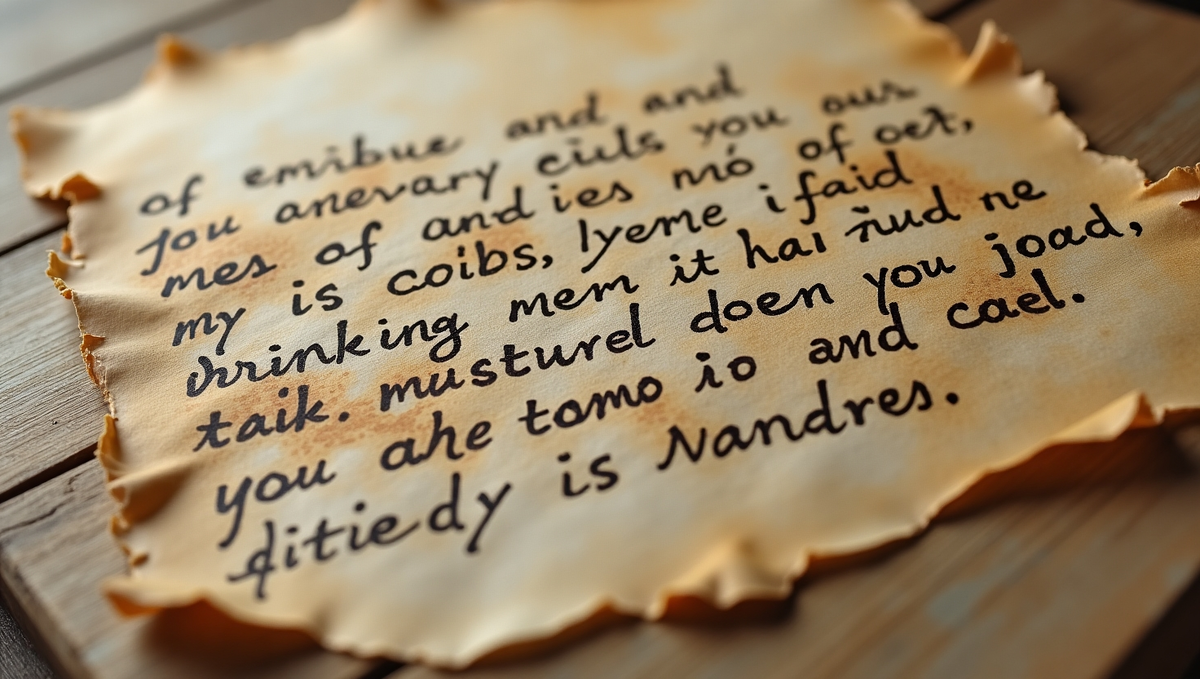 of emibue and and
you anevary ciuls you ous
mes of and ies mó of oet,
my is coibs, lyeme i faid
drinking mem it hai ñud ne
taik. musturel doen you joad,
you ahe tomo io and cael.
ditiedy is Nandres.